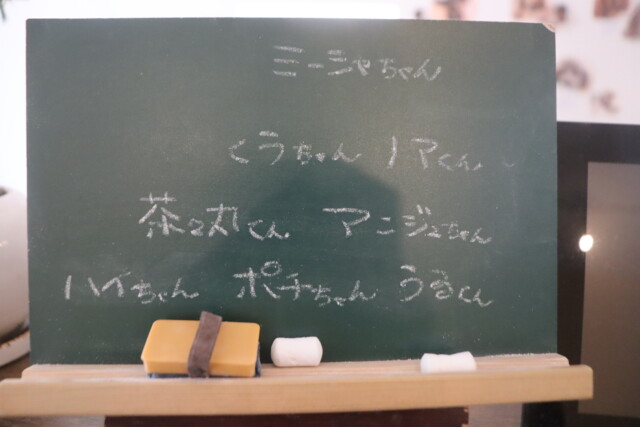 ミーシャちゃん
くうちゃん ノアくん
茶々丸くん アンジュちゃん
ハイちゃん ポチちゃん うるくん